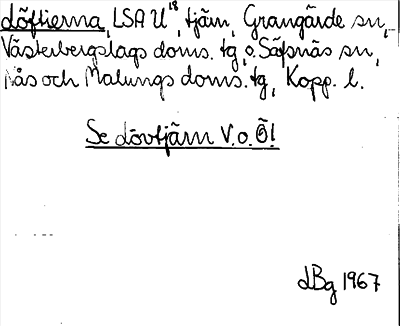 döftierna, LSA U¹⁸, tjärn, Grangärde sn,
Västerbergslags doms. tg, o. Säfsnäs sn,
Nås och Malungs doms. tg, Kopp. l.
Se dövtjärn V. o. Ö!
dBg 1967